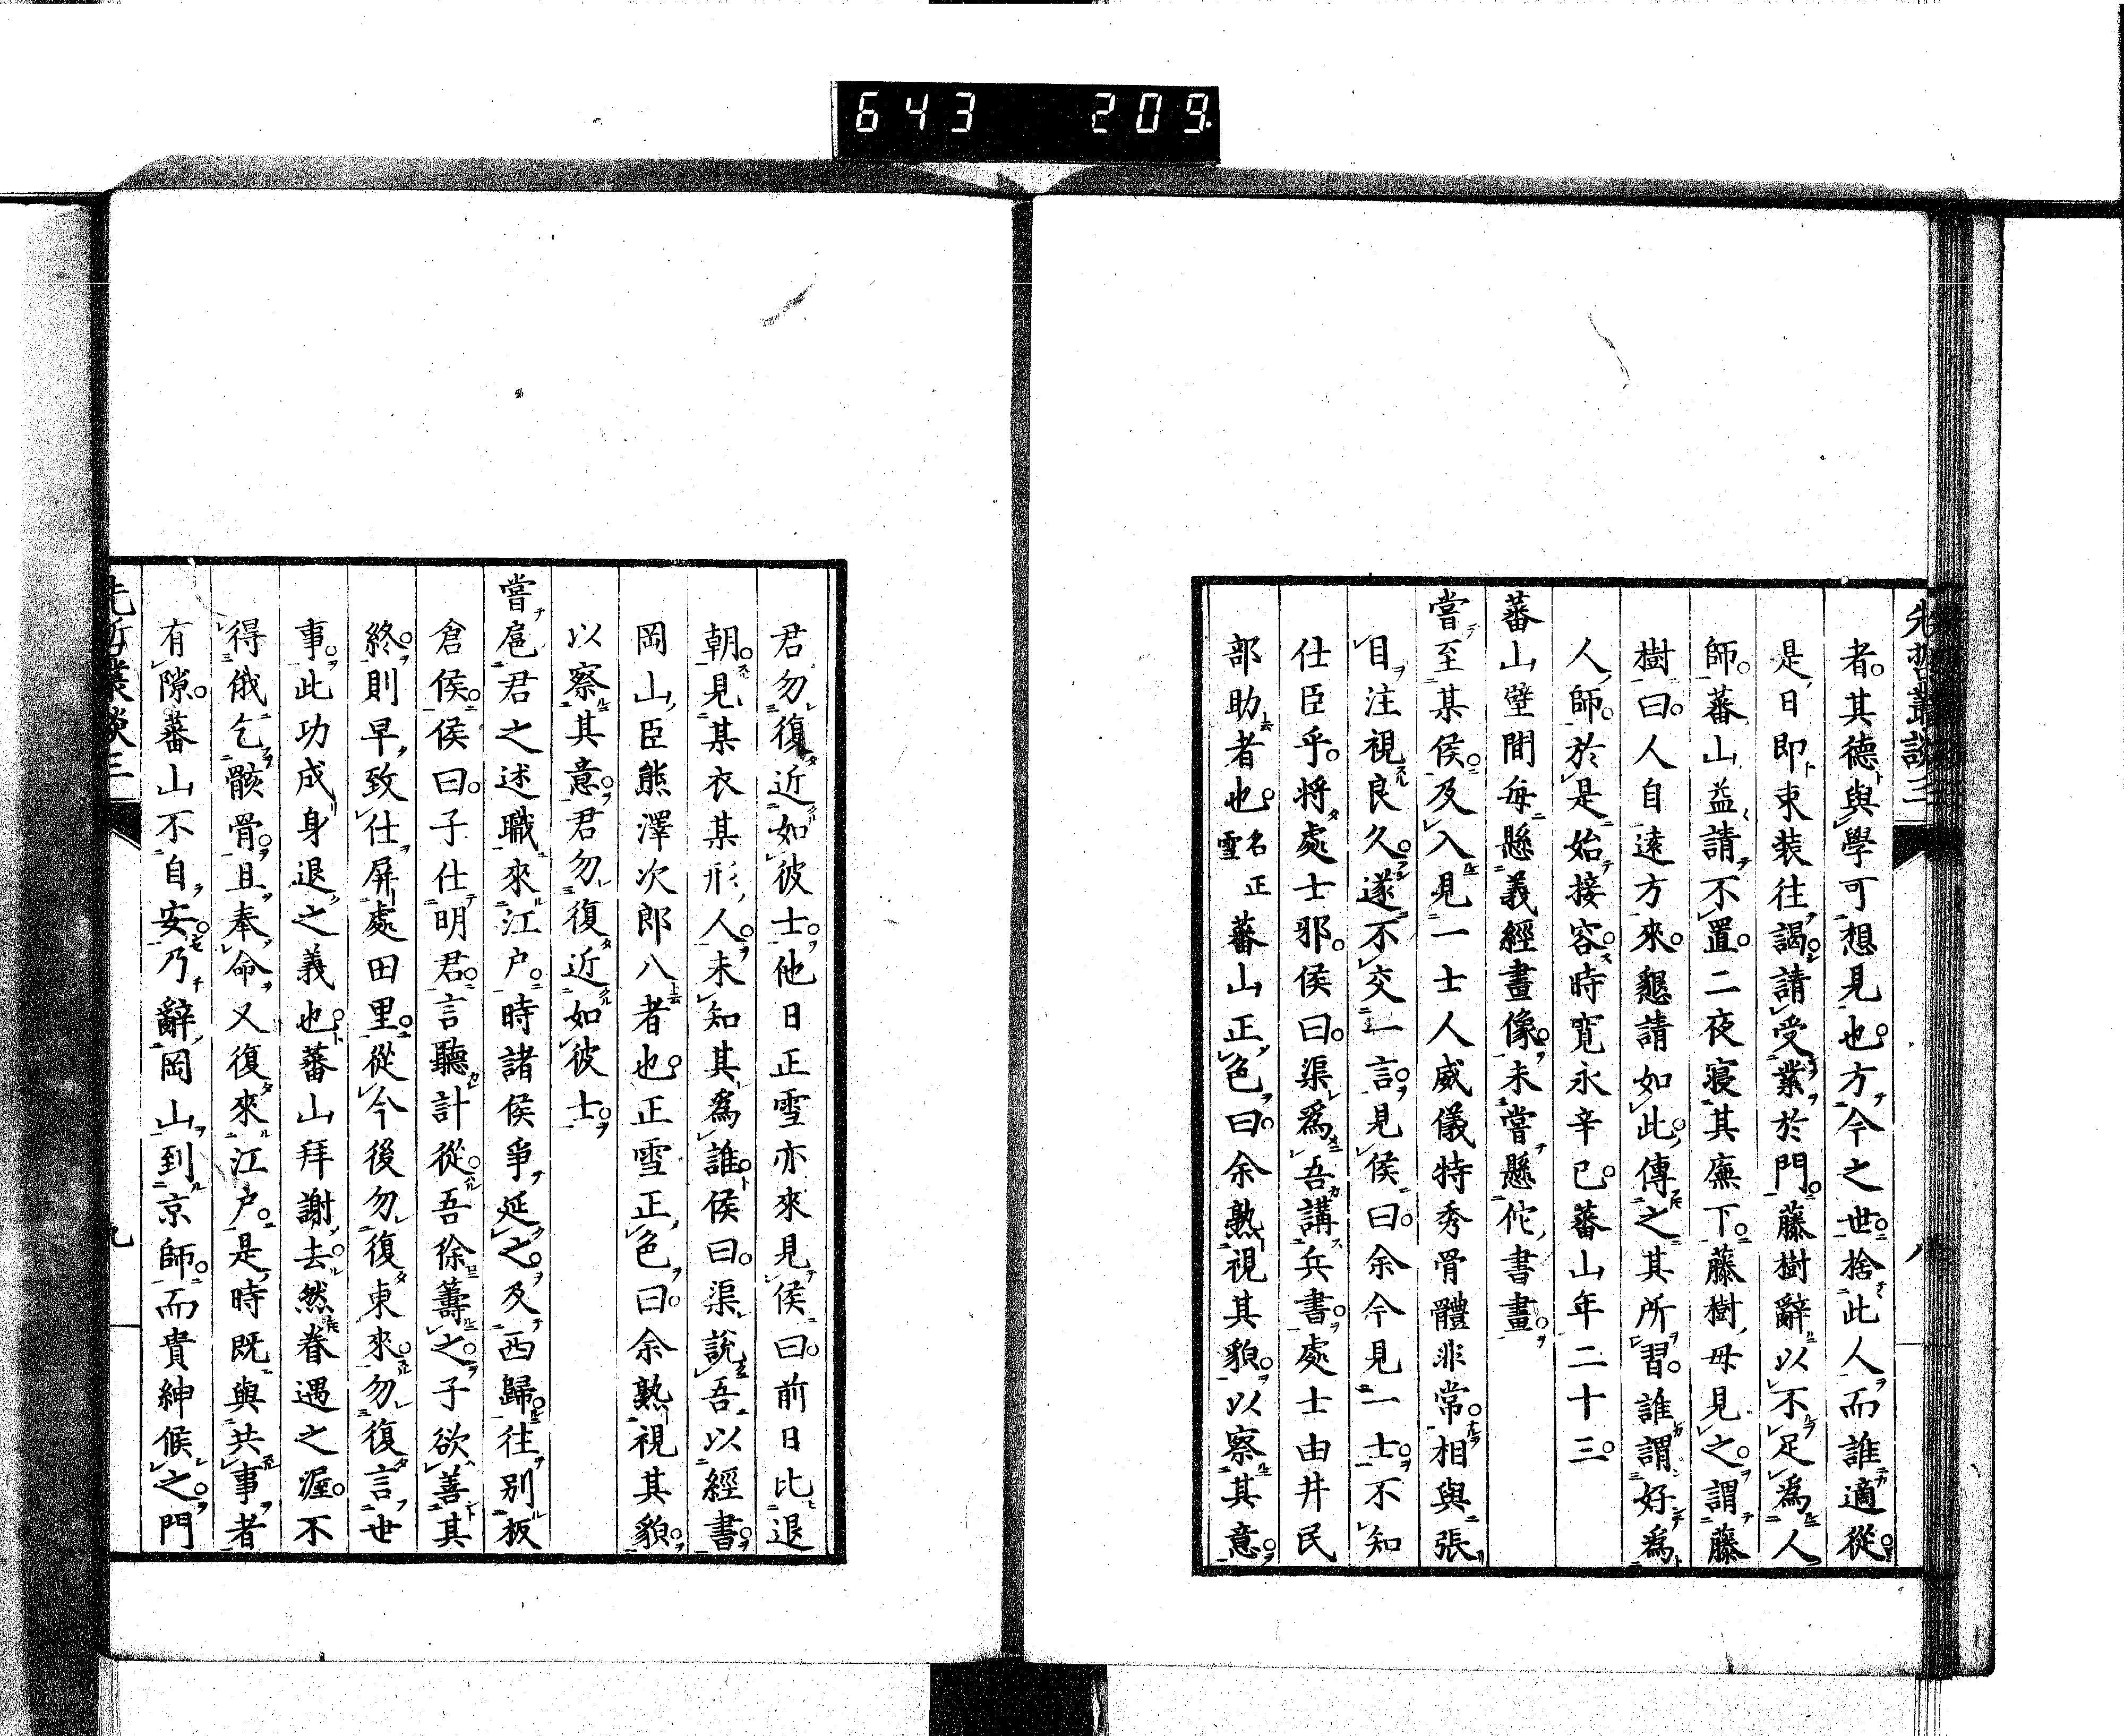 643 209
先哲叢談三
八
者其德與學可想見也方今之世捨此人而誰適從
是日即束裝往謁請受業於門藤樹辭以不足為人
師蕃山益請不置二夜寢其廡下藤樹母見之謂藤
樹曰人自遠方來懇請如此傳之其所習誰謂好為
人師於是始接容時寬永辛巳蕃山年二十三
蕃山壁間每懸義經畫像未嘗懸佗書畫
嘗至某侯及入見一士人威儀特秀骨體非常相與張
目注視良久遂不交一言見侯曰余今見一士不知
仕臣乎將處士邪侯曰渠為吾講兵書處士由井民
部助者也名正雪蕃山正色曰余熟視其貌以察其意
君勿復近如彼士他日正雪亦來見侯曰前日比退
朝見某衣某形人未知其為誰侯曰渠說吾以經書
岡山臣熊澤次郎八者也正雪正色曰余熟視其貌
以察其意君勿復近如彼士
嘗扈君之述職來江戶時諸侯爭延之及西歸往別板
倉侯侯曰子仕明君言聽計從吾徐籌之子欲善其
終則早致仕屏處田里從今後勿復東來勿復言世
事此功成身退之義也蕃山拜謝去然眷遇之渥不
得俄乞骸骨且奉命又復來江戶是時既與共事者
有隙蕃山不自安乃辭岡山到京師而貴紳候之門
先哲叢談三
九